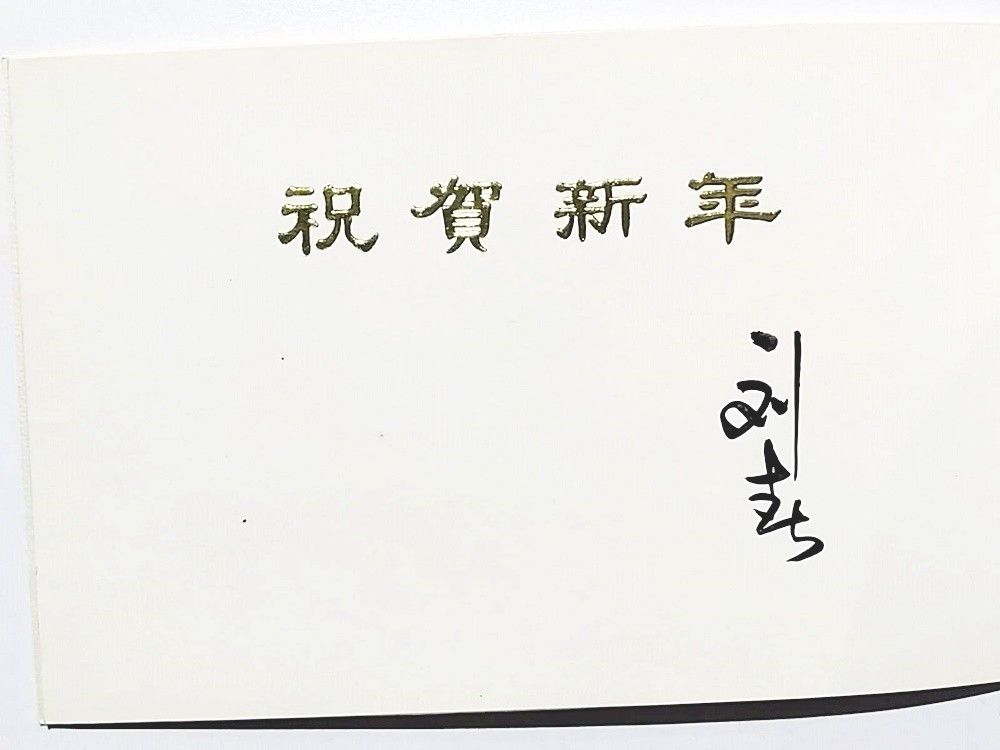 祝賀新年